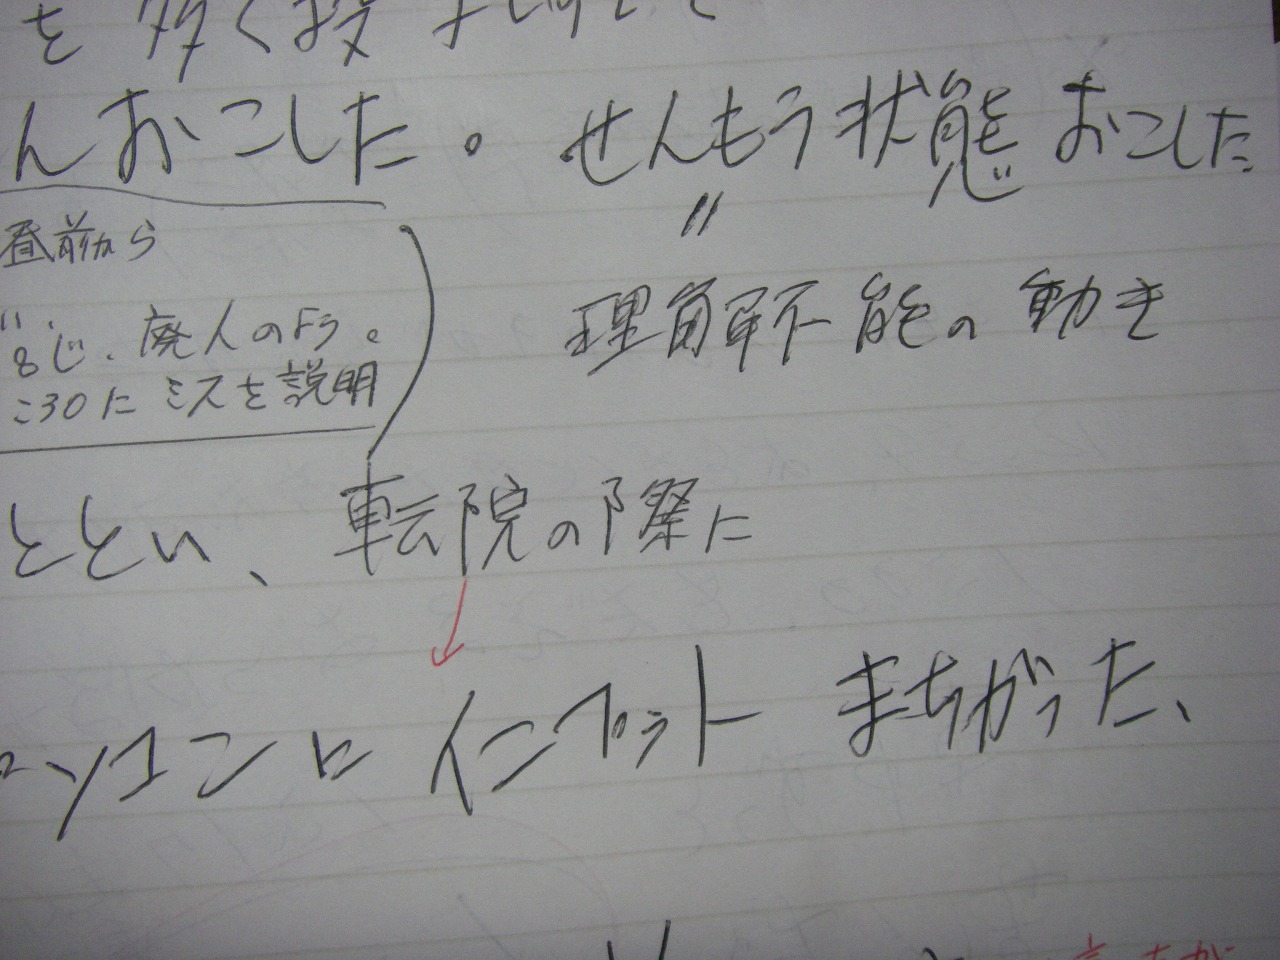 を多く投
んおこした。 せんもう状態おこした
〃
昼前から
理解不能の動き
同じ、廃人のよう。
ミスを説明
ととい、転院の際に
ソコンに インプット まちがった、